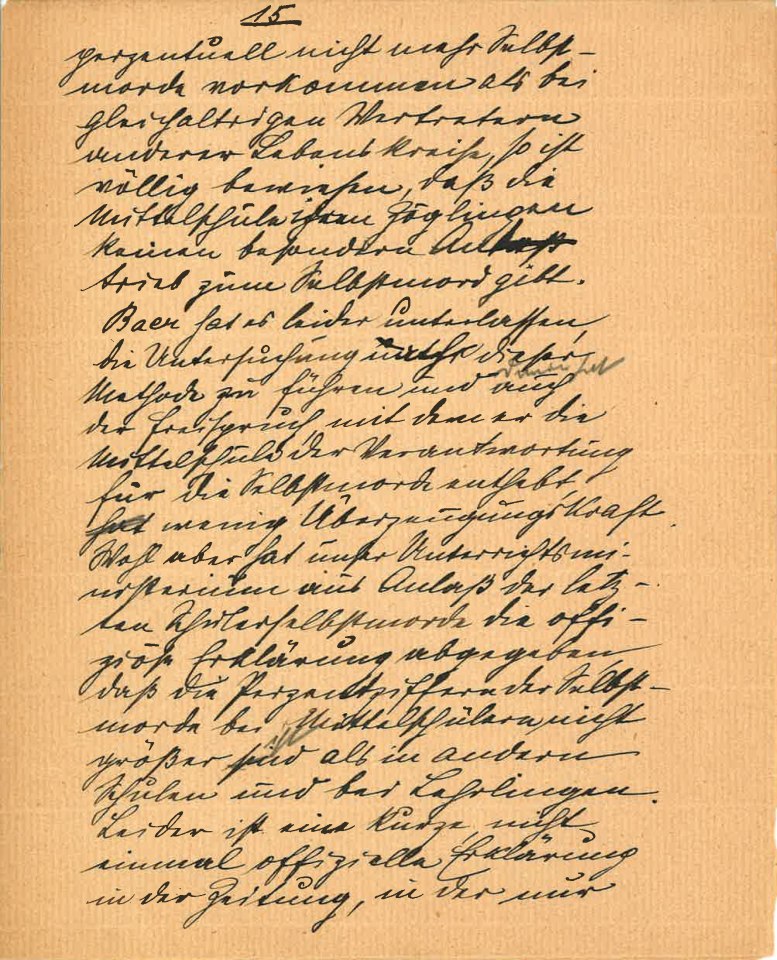 15
perzentuell nicht mehr Selbst-
morde vorkommen als bei
gleichaltrigen Vertretern
anderer Lebenskreise, so ist
völlig bewiesen, daß die
Mittelschule ihren Zöglingen
keinen besondern Anlaß
trieb zum Selbstmord gibt.
Baer hat es leider unterlassen,
die Untersuchung nach dieser
Methode zu führen und auch
der Freispruch, mit dem er die
Mittelschule der Verantwortung
für die Selbstmorde enthebt,
hat wenig Überzeugungskraft.
Wohl aber hat unser Unterrichtsmi-
nisterium aus Anlaß der letz-
ten Schülerselbstmorde die offi-
ziöse Erklärung abgegeben,
daß die Perzentziffern der Selbst-
morde bei Mittelschülern nicht
ist
größer sind als in andern
Schulen und bei Lehrlingen.
Leider ist eine kurze, nicht
einmal offizielle Erklärung
in der Zeitung, in der nur